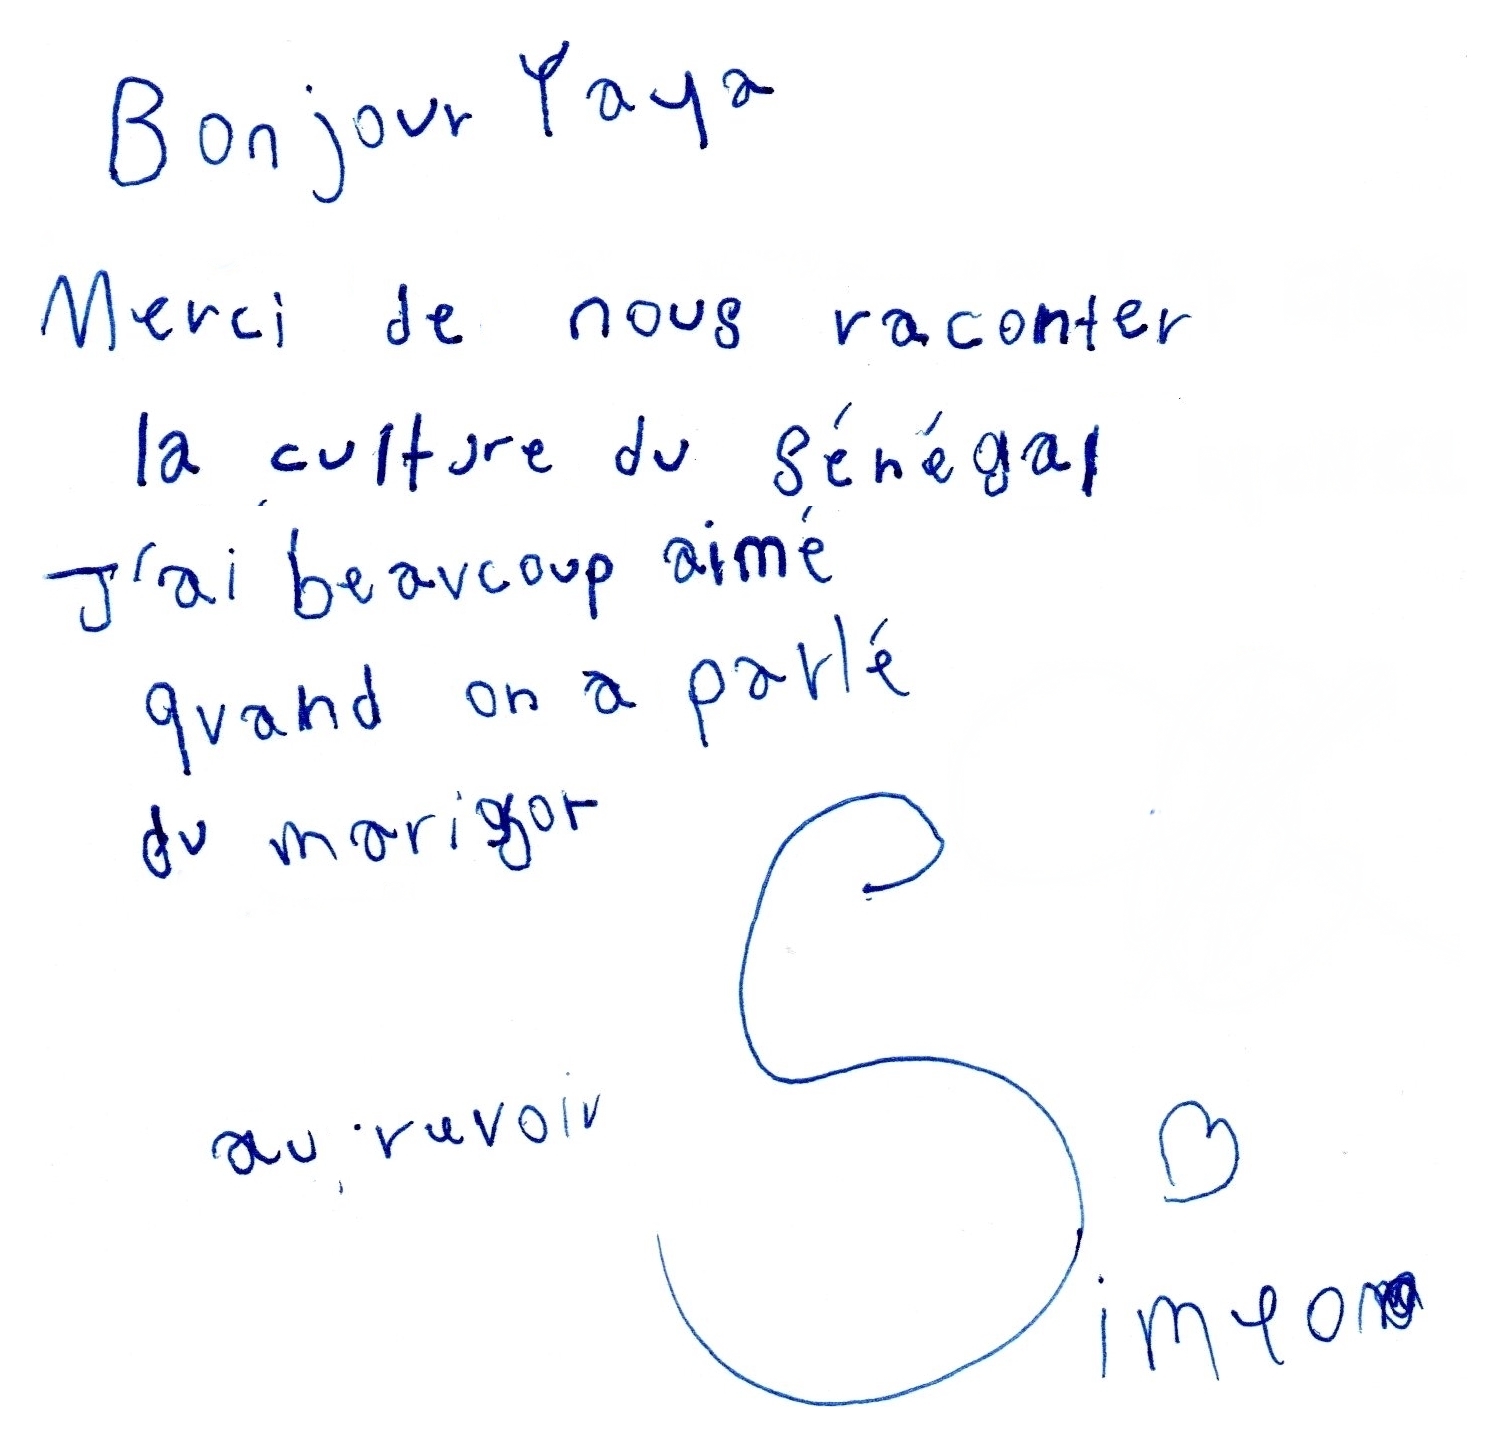 Bonjour Yaya
Merci de nous raconter
la culture du Sénégal
J'ai beaucoup aimé
quand on a parlé
du marigot
au revoir
Simeon